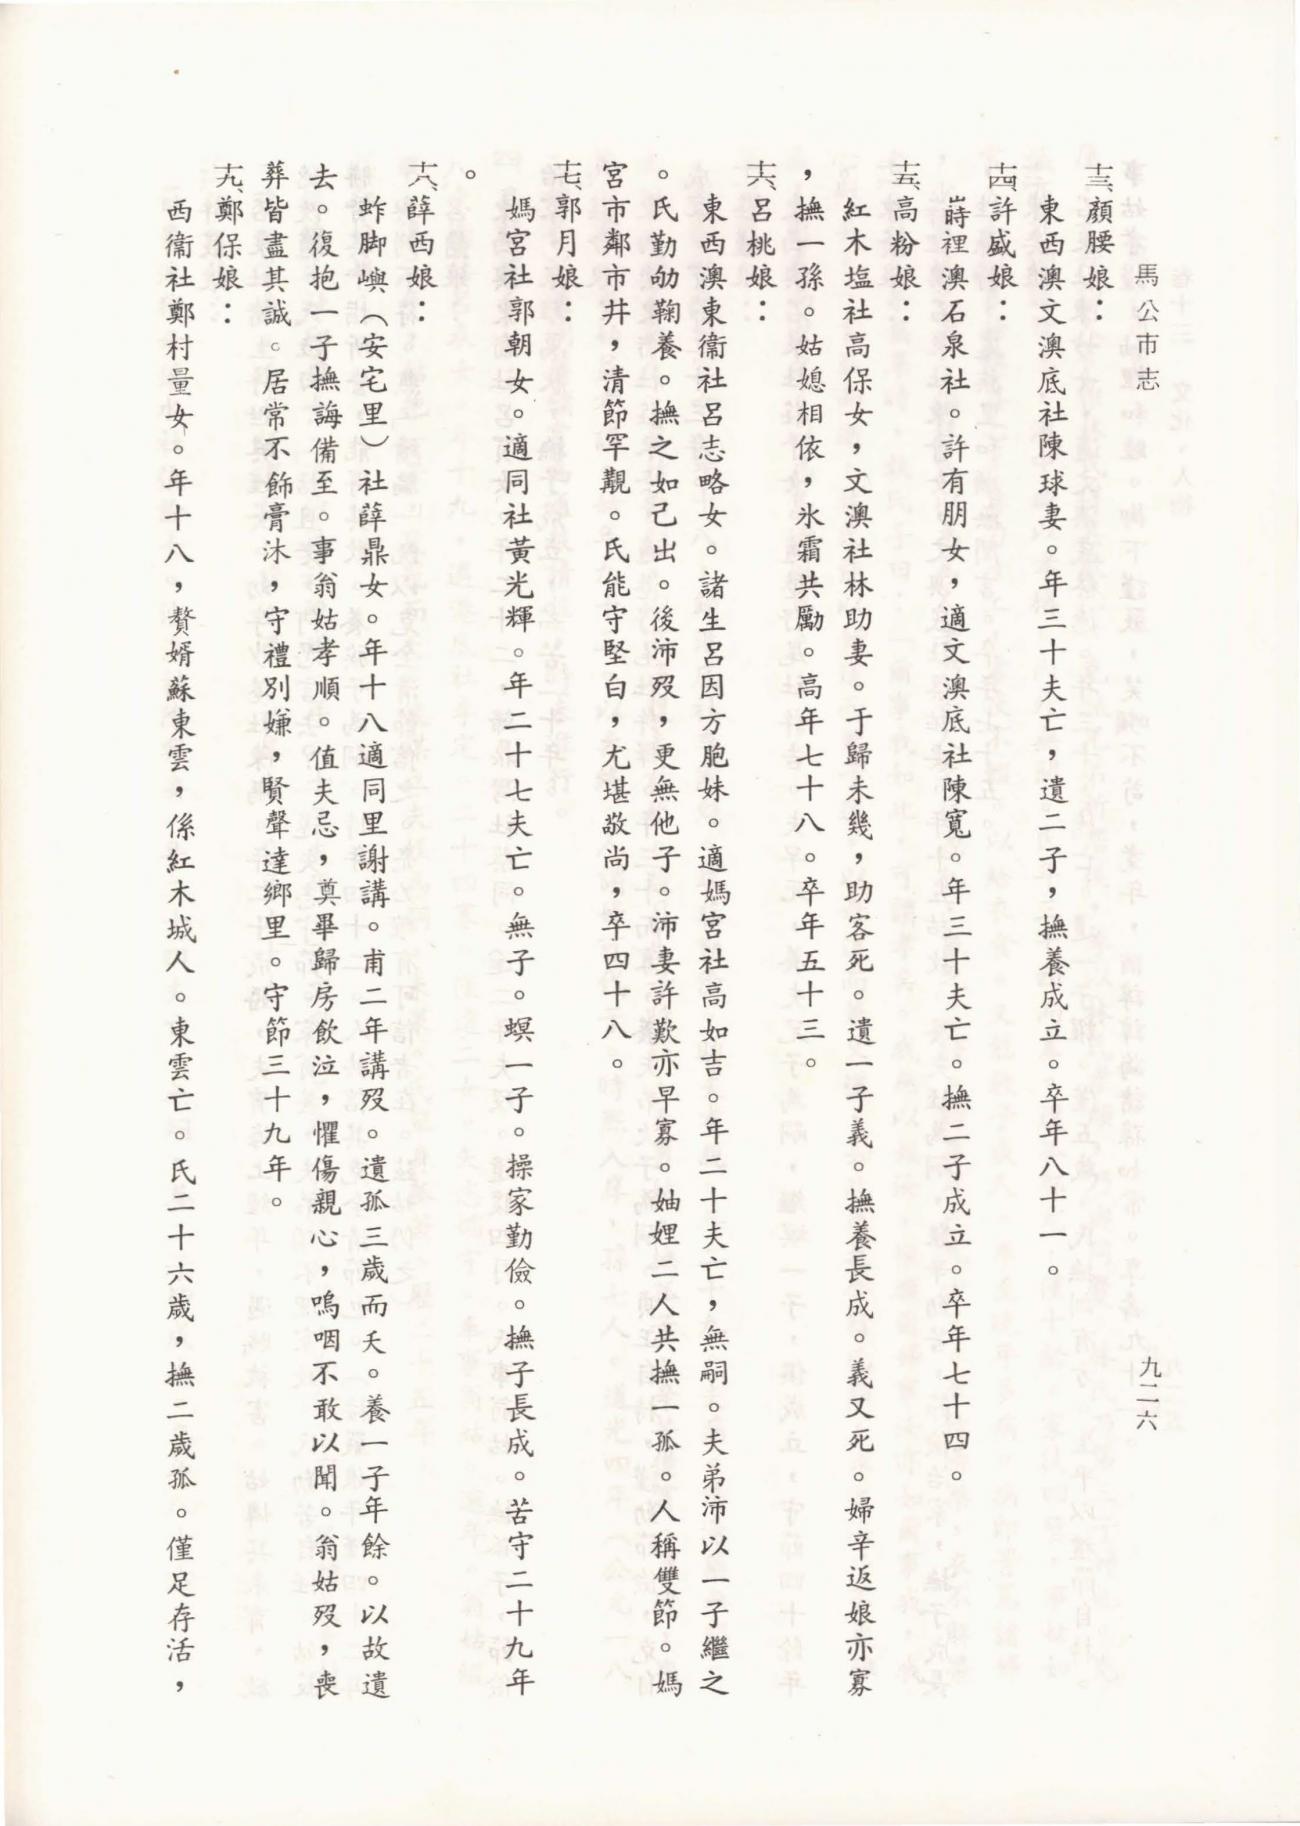 馬公市志
九二六
十三、顏腰娘：
東西澳文澳底社陳球妻。年三十夫亡，遺二子，撫養成立。卒年八十一。
十四、許盛娘：
嵵裡澳石泉社。許有朋女，適文澳底社陳寬。年三十夫亡。撫二子成立。卒年七十四。
十五、高粉娘：
紅木塩社高保女，文澳社林助妻。于歸未幾，助客死。遺一子義。撫養長成。義又死。婦辛返娘亦寡
，撫一孫。姑媳相依，氷霜共勵。高年七十八。卒年五十三。
十六、呂桃娘：
東西澳東衞社呂志略女。諸生呂因方胞妹。適媽宮社高如吉。年二十夫亡，無嗣。夫弟沛以一子繼之
。氏勤劬鞠養。撫之如己出。後沛歿，更無他子。沛妻許歎亦早寡。妯娌二人共撫一孤。人稱雙節。媽
宮市鄰市井，清節罕覯。氏能守堅白，尤堪敬尚，卒四十八。
十七、郭月娘：
媽宮社郭朝女。適同社黃光輝。年二十七夫亡。無子。螟一子。操家勤儉。撫子長成。苦守二十九年
。
十八、薛西娘：
蚱脚嶼（安宅里）社薛鼎女。年十八適同里謝講。甫二年講歿。遺孤三歲而夭。養一子年餘。以故遺
去。復抱一子撫誨備至。事翁姑孝順。值夫忌，奠畢歸房飲泣，懼傷親心，嗚咽不敢以聞。翁姑歿，喪
葬皆盡其誠。居常不飾膏沐，守禮別嫌，賢聲達鄉里。守節三十九年。
十九、鄭保娘：
西衞社鄭村量女。年十八，贅婿蘇東雲，係紅木城人。東雲亡。氏二十六歲，撫二歲孤。僅足存活，